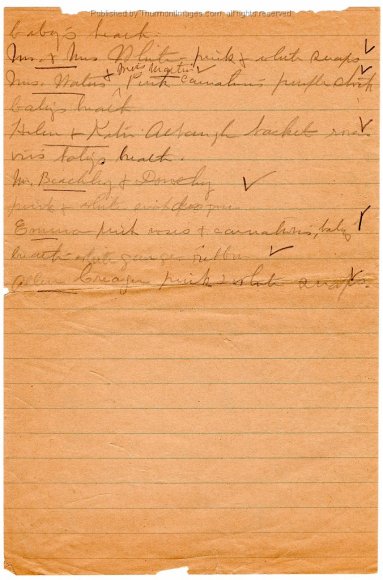 Published by ThurmontImages.com, all rights reserved.
baby's breath.
Mr. & Mrs White pink & white snaps ✓
& Mrs Martin ✓
Mrs. Waters pink carnations purple stock ✓
baby's breath
Helen & Katie Albaugh basket roses ✓
baby's breath.
Mr. Beachley & Dorothy ✓
pink & white
Emma pink roses & carnations, baby ✓
breath white ribbon ✓
Helen Creager pink & white snaps.